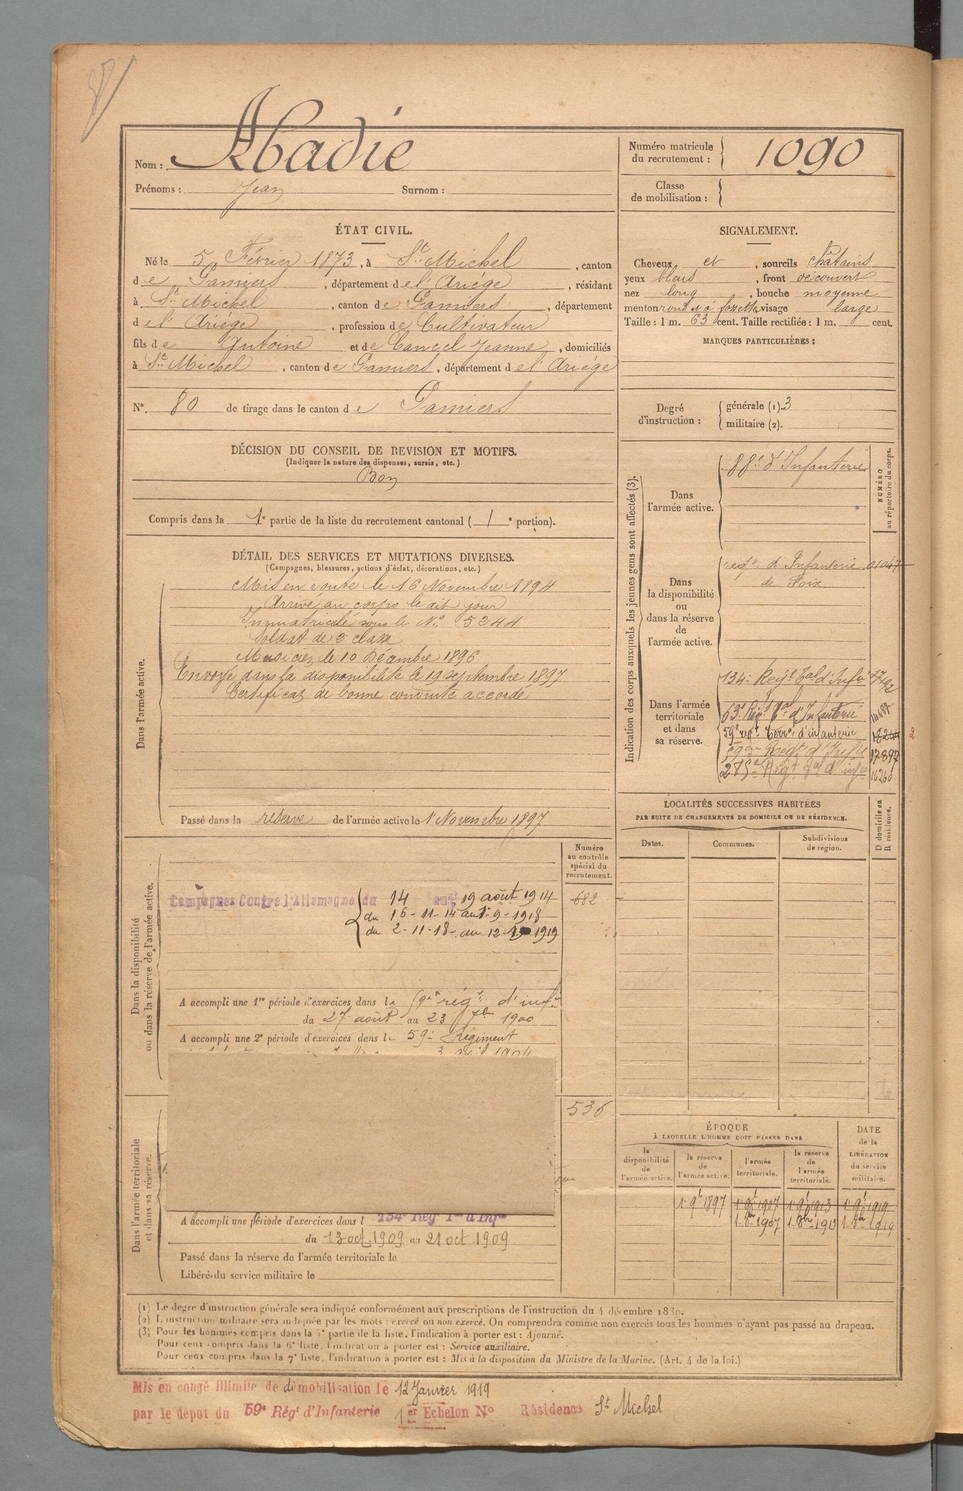 Nom : Abadie
Prénoms : Jean Surnom :
Numéro matricule du recrutement : 1090
Classe de mobilisation :
ÉTAT CIVIL.
Né le 5 Février 1873, à St Michel, canton
de Pamiers, département de l'Ariège, résidant
à St Michel, canton de Pamiers, département
de l'Ariège, profession de Cultivateur
fils de Antoine et de Cancel Jeanne, domiciliés
à St Michel, canton de Pamiers, département de l'Ariège
N° 80 de tirage dans le canton de Pamiers
SIGNALEMENT.
Cheveux et, sourcils châtains
yeux bleus, front découvert
nez long, bouche moyenne
menton rond à fossette visage large
Taille : 1 m. 63 cent. Taille rectifiée : 1 m. cent.
MARQUES PARTICULIÈRES :
Degré d'instruction : générale (1). 3
militaire (2).
DÉCISION DU CONSEIL DE REVISION ET MOTIFS.
(Indiquer la nature des dispenses, sursis, etc.)
Bon
Compris dans la 1e partie de la liste du recrutement cantonal (1e portion).
DÉTAIL DES SERVICES ET MUTATIONS DIVERSES.
(Campagnes, blessures, actions d'éclat, décorations, etc.)
Dans l'armée active.
Mis en route le 16 Novembre 1894
Arrivé au corps le dit jour
Immatriculé sous le N° 5244
Soldat de 2e classe
Musicien le 10 Décembre 1896
Envoyé dans la disponibilité le 19 septembre 1897
Certificat de bonne conduite accordé
Passé dans la réserve de l'armée active le 1 Novembre 1897
Indication des corps auxquels les jeunes gens sont affectés (3).
NUMÉRO au répertoire du corps.
Dans l'armée active.
88e d'Infanterie
Dans la disponibilité ou dans la réserve de l'armée active.
regt d'Infanterie
de Foix
Dans l'armée territoriale et dans sa réserve.
134e Regt Tal d'Infie
63e Régt Tal d'Infanterie
59e regt Terral d'infanterie
59e Regt d'Infie
Regt Tal d'infie
LOCALITÉS SUCCESSIVES HABITÉES
PAR SUITE DE CHANGEMENTS DE DOMICILE OU DE RÉSIDENCE.
Dates. Communes. Subdivisions de région. D domicile ou R résidence.
Dans la disponibilité ou dans la réserve de l'armée active.
Numéro au contrôle spécial du recrutement.
682
Campagnes Contre l'Allemagne du 14 au 19 août 1914
du 16-11-14 au 1-9-1918
du 2-11-18 au 12-1-1919
A accompli une 1re période d'exercices dans le 59e régt d'infie
du 27 août au 23 7bre 1900
A accompli une 2e période d'exercices dans le 59e Régiment
Dans l'armée territoriale et dans sa réserve.
536
A accompli une période d'exercices dans l 134e Régt Tal d'Infie
du 13 oct. 1909 au 21 oct 1909
Passé dans la réserve de l'armée territoriale le
Libéré du service militaire le
ÉPOQUE
À LAQUELLE L'HOMME DOIT PASSER DANS
la disponibilité de l'armée active. la réserve de l'armée active. l'armée territoriale. la réserve de l'armée territoriale. DATE de la LIBÉRATION du service militaire.
1 9bre 1897 1 9bre 1907 1 9bre 1913 1 9bre 1919
1 8bre 1907 1 8bre 1913 1 8bre 1919
(1) Le degré d'instruction générale sera indiqué conformément aux prescriptions de l'instruction du 4 décembre 1889.
(2) L'instruction militaire sera indiquée par les mots : exercé ou non exercé. On comprendra comme non exercés tous les hommes n'ayant pas passé au drapeau.
(3) Pour les hommes compris dans la 5e partie de la liste, l'indication à porter est : Ajourné.
Pour ceux compris dans la 6e liste, l'indication à porter est : Service auxiliaire.
Pour ceux compris dans la 7e liste, l'indication à porter est : Mis à la disposition du Ministre de la Marine. (Art. 4 de la loi.)
Mis en congé illimité de démobilisation le 12 Janvier 1919
par le dépot du 59e Régt d'Infanterie 1er Echelon N° Résidence St Michel